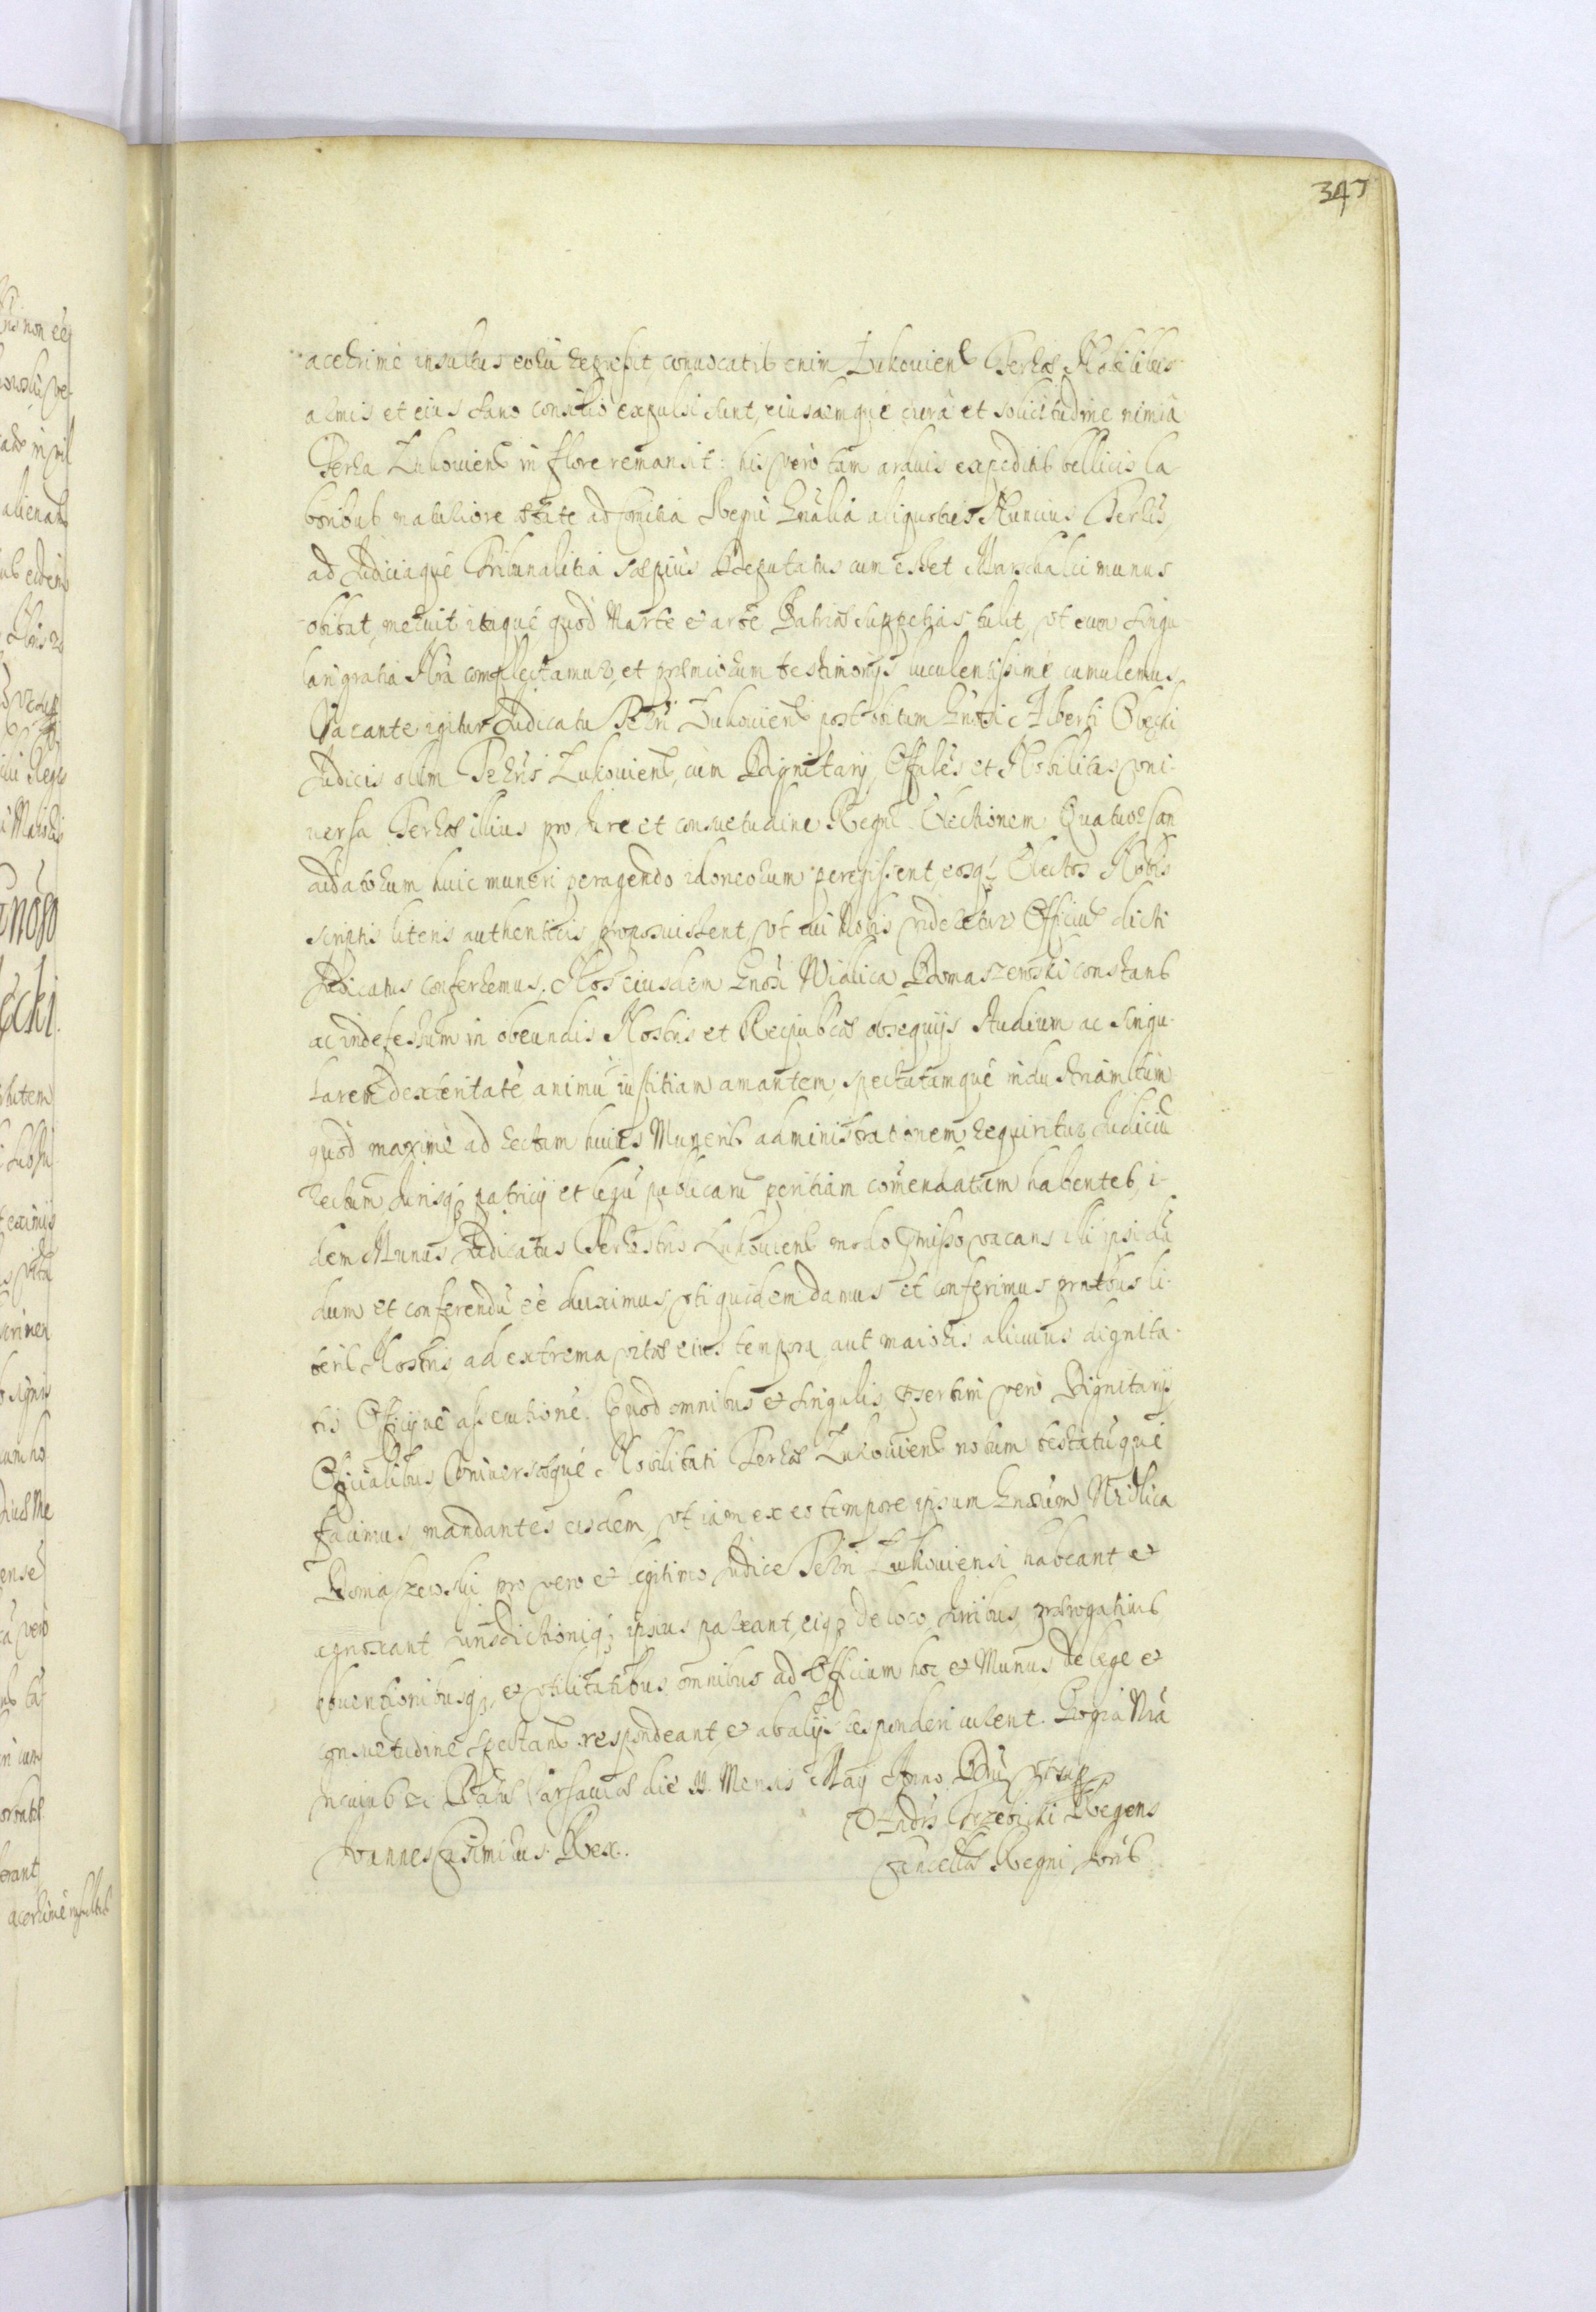 345
acerrimè insultus eorũ repressit, convocatis enim Łukovien̄ Terræ Nobilibus
armis et eius sano consilio expulsi sunt, eiusdemque cura et solicitudine nimia
Terra Łukovien̄ in flore remansit: his verò tam arduis expedin̄b bellicis la-
boribus maturiore ætate ad Comitia Regni Gnãlia aliquoties Nuncius Terrĩs,
ad Judiciaque Tribunalitia sæpius Deputatus cum esset Marschalci munus
obibat, meruit itaque quod Marte et arte Patriæ suppetias tulit, vt eum singu-
lari gratia Nrã complectamur, et præmiorum testimonijs luculentissimè cumulemus.
Vacante igitur Judicatu Tẽrri Łukovien̄ post obitum Gnõsi Alberti
Judicis olim Terrĩs Łukovien̄, cùm Dignitarij, Offáles et Nobilitas vni-
uersa Terræ illius pro Jure et consuetudine Regni Electionem Quatuor Can
didatorum huic muneri peragendo idoneorum peregissent, eosq; Electos Nobis
scriptis literis authenticis proposuissent, vt cui Nobis videretur Officiũ dicti
Judicatus conferremus. Nos eiusdem Gnõsi Michaelis Domaszewski constant̄
ac indefessum in obeundis Nostris et Reipublcæ obsequijs studium ac singu-
larem dexteritatẽ animũ iustitiam amantem, spectatamque industriam, tum
quod maximè ad rectam huius Muneris administrationem requiritur, Judiciũ
rectum, Jurisq; patrij et legũ publicarũ peritiam com̃endatam habentes, i-
dem Munus Judicatus Terrestris Łukovien̄ modo præmisso vacans illi ipsi dã
dum et conferendũ eẽ duximus, vti quidem damus et conferimus prætibus li-
teris Nostris, ad extrema vitæ eius tempora, aut maioris alicuius dignita-
tis Officijue assecutionẽ. Quod omnibus et singulis, præsertim vero Dignitarijs
Officialibus Vniuersæque Nobilitati Terræ Łukovien̄ notum testatũque
facimus, mandantes eisdem, vt iam ex eo tempore ipsum Gnõsum
Domaszewski pro vero et legitimo Judice Tẽrri Łukoviensi habeant et
agnoscant, Jurisdictioniq; ipsius pareant, eiq; de loco, Juribus, prærogatiuis
obuentionibusq; et vtilitatibus omnibus ad Officium hoc et Munus de lege et
consuetudine spectant̄ respondeant, et ab alijs responderi curent. Pro gratia Nrã
In cuius rei Datũ Varsauiæ die Mensis Maij Anno Dñi vt supra
Joannes Casimirus Rex. Andrs Trzebicki Regens
Cancellæ Regni